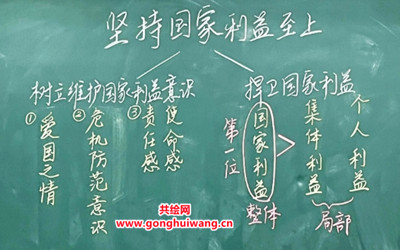 坚持国家利益至上
树立维护国家利益意识
捍卫国家利益
①爱国之情
②危机防范意识
③责任感
使命感
第一位
国家利益
>
集体利益
个人利益
整体
局部
共绘网
www.gonghuiwang.cn